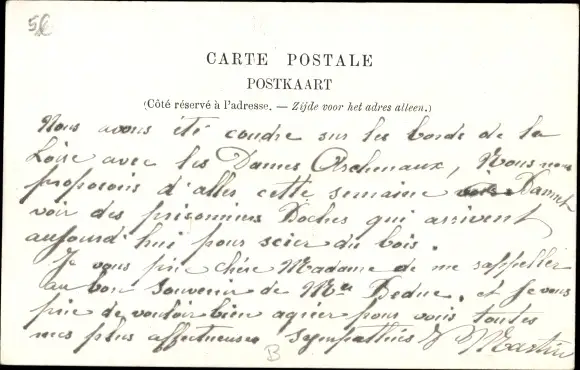 56
CARTE POSTALE
POSTKAART
(Côté réservé à l'adresse. — Zijde voor het adres alleen.)
Nous avons été coudre sur les bords de la
Loire avec les Dames Archenaux, Nous nous
proposons d'aller cette semaine
voir des prisonniers Boches qui arrivent
aujourd'hui pour scier du bois.
Je vous prie chère Madame de me rappeller
au bon souvenir de Mr Leduc. et je vous
prie de vouloir bien agréer pour vous toutes
mes plus affectueuses sympathies
Martin
B